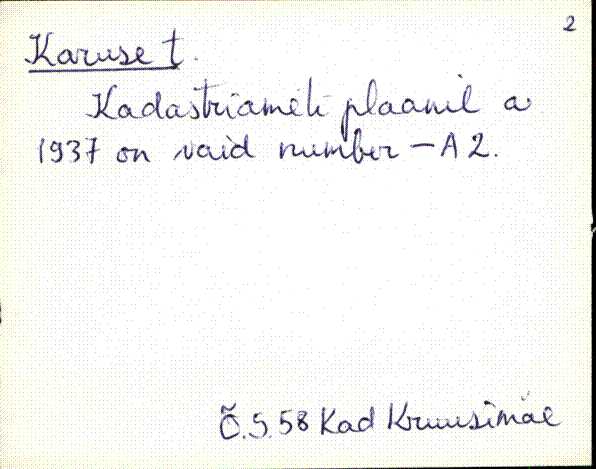 2
Karuse t.
Kadastriameti plaanil a
1937 on vaid number – A 2.
Õ.S. 58 Kad Kruusimäe